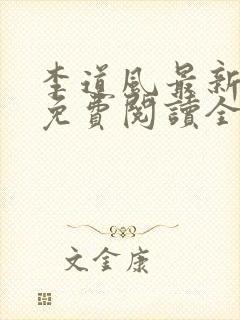 李道风最新
免費閱讀全
文金康